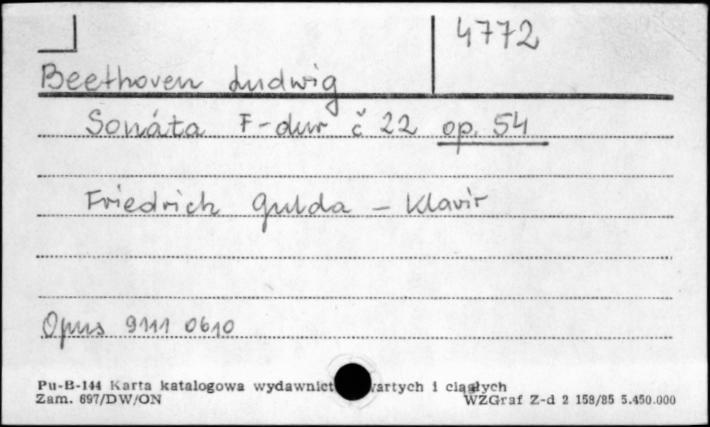 4772
Beethoven Ludwig
Sonáta F-dur č 22 op. 54
Friedrich Gulda – klavír
Opus 9111 0610
Pu-B-144 Karta katalogowa wydawnict wartych i ciągłych
Zam. 697/DW/ON WZGraf Z-d 2 158/85 5.450.000